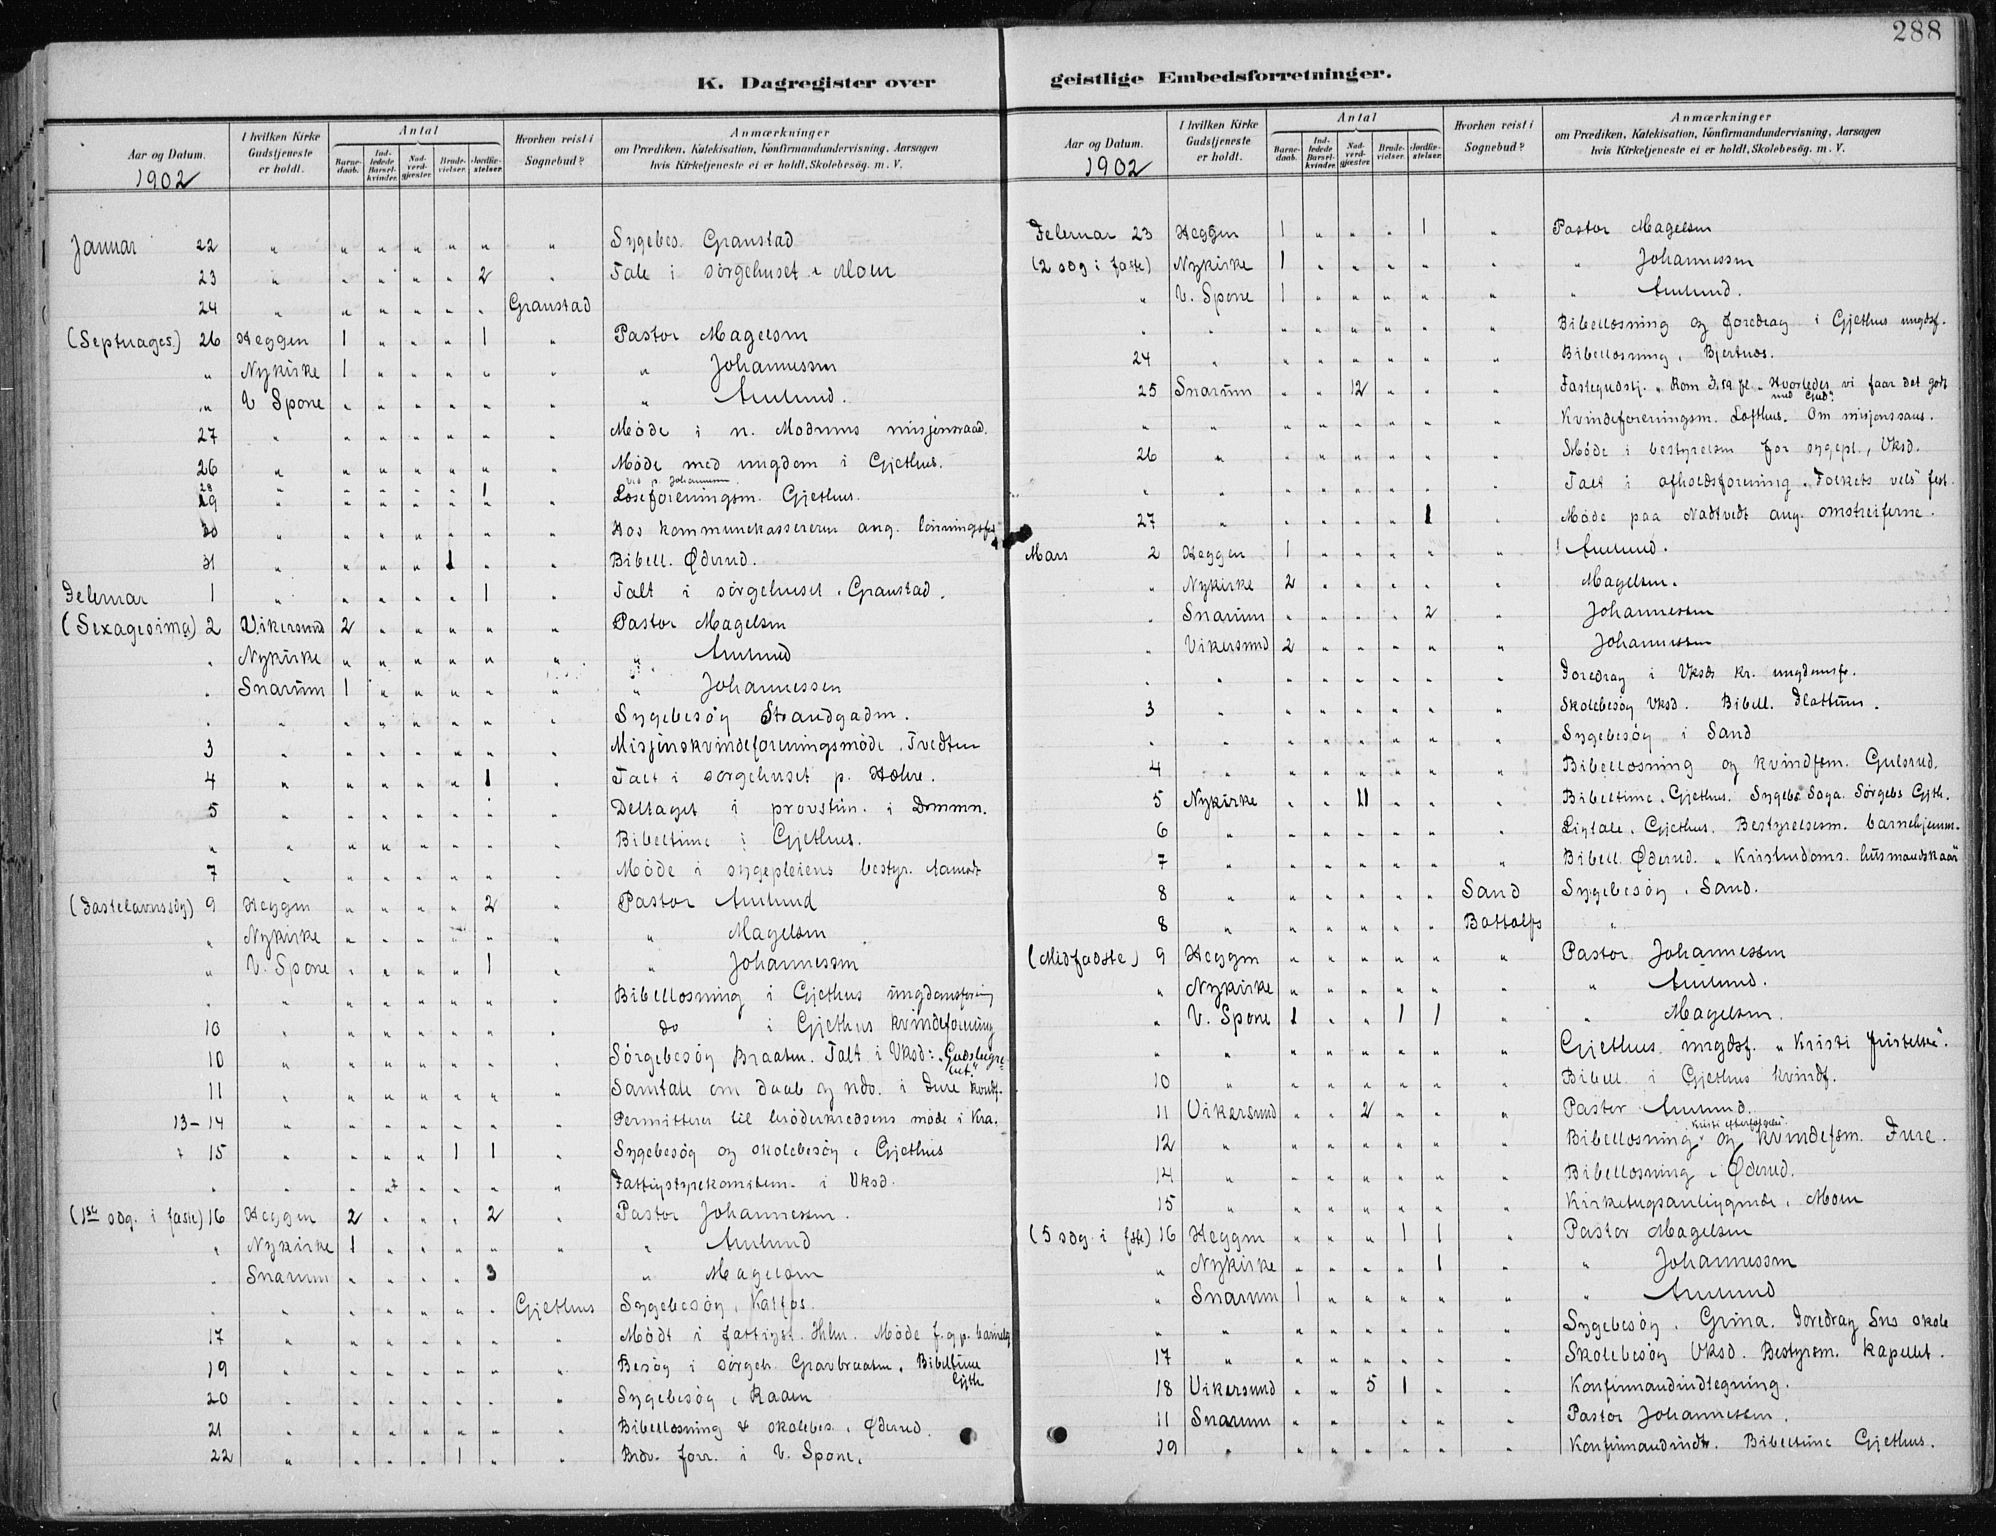 288
K. Dagregister over
geistlige Embedsforretninger.
Aar og Datum.
1902
I hvilken Kirke Gudstjeneste er holdt.
Antal
Barne-daab.
Ind-ledede Barsel-kvinder.
Nad-verd-gjæster.
Brude-vielser.
Jordfæ-stelser.
Hvorhen reist i Sognebud?
Anmærkninger
om Prædiken, Katekisation, Konfirmandundervisning, Aarsagen
hvis Kirketjeneste ei er holdt, Skolebesög. m. V.
Januar 22 " " " " " " " Sygebes. Granstad
23 " " " " " 2 " Tale i sørgehuset i Moen
24 " " " " " " Granstad
(Septuages.) 26 Heggen 1 " " " 1 " Pastor Magelsen
" Nykirke 1 " " " " " " Johannessen
" V Spone " " " " " " " Amlund.
27 " " " " " " " Møde i n. Modums misjonsraad.
26 " " " " " " " Møde med ungdom i Gjethus.
28 " " " " " 1 ved p. Johannessen
29 " " " " " " " Læseforeningsm. Gjethus.
30 " " " " " " " Hos kommunekassereren ang. lønningsfs
31 " " " " 1 " " Bibell. Øderud.
Februar 1 " " " " " 1 " Talt i sørgehuset i Granstad.
(Sexagesima) 2 Vikersund 2 " " " " " Pastor Magelsen
" Nykirke " " " " " " " Amlund
" Snarum 1 " " " " " " Johannessen
" " " " " " " " Sygebesøg Strandgadm.
3 " " " " " " " Misjonskvindeforeningsmøde i Tvedten
4 " " " " " 1 " Talt i sørgehuset p. Hovre.
5 " " " " " " " Deltaget i provstim. i Drammn.
" " " " " " " " Bibeltime i Gjethus.
7 " " " " " " " Møde i sygepleiens bestyr. Aamodt
(Fastelavnssøg) 9 Heggen " " " " 2 " Pastor Amlund
" Nykirke " " " " " " " Magelsen
" V. Spone " " " " 1 " " Johannessen
" " " " " " " " Bibellæsning i Gjethus ungdomsforening
10 " " " " " " " do i Gjethus kvindeforening
10 " " " " " " " Sørgebesøg Braaten. Talt i Vksd: "Gudsbegre-bet."
11 " " " " " " " Samtale om daab og ndv. i Fure kvindf.
13–14 " " " " " " " Permitteret til brøderkredsens møde i Kra.
15 " " " " 1 1 " Sygebesøg og skolebesøg i Gjethus
" " " " " " " " Fattigstyrekomiteen i Vksd.
(1ste søg. i faste) 16 Heggen 2 " " " 2 " Pastor Johannessen.
" Nykirke 1 " " " " " " Amlund
" Snarum " " " " 3 " Magelsen
" " " " " " " Gjethus Sygebesøg i Katfos.
17 " " " " " " " Mødt i fattigst. Hhm. Møde f. g. p. barnehj
19 " " " " " " " Besøg i sørgeh. Gravbraaten. Bibeltime Gjth
20 " " " " " " " Sygebesøg i Raaen
21 " " " " " " " Bibellæsning & skolebes. i Øderud.
22 " " " " 1 " " Brdv. forr. i V. Spone.
Aar og Datum.
1902
I hvilken Kirke Gudstjeneste er holdt.
Antal
Barne-daab.
Ind-ledede Barsel-kvinder.
Nad-verd-gjæster.
Brude-vielser.
Jordfæ-stelser.
Hvorhen reist i Sognebud?
Anmærkninger
om Prædiken, Katekisation, Konfirmandundervisning, Aarsagen
hvis Kirketjeneste ei er holdt, Skolebesög. m. V.
Februar 23 Heggen 1 " " " 1 " Pastor Magelsen
(2 søg i faste) Nykirke 1 " " " " " " Johannessen
" V. Spone 1 " " " " " " Amlund.
" " " " " " " " Bibellæsning og foredrag i Gjethus ungdsf.
24 " " " " " " " Bibellæsning i Bjertnæs.
25 Snarum " " 12 " " " Fastegudstj. " Rom 3,19 fl. "Hvorledes vi faar det godt med Gud".
" " " " " " " " Kvindeforeningsm. Lofthus. Om misjonssans.
26 " " " " " " " Møde i bestyrelsen for sygepl., Vksd.
" " " " " " " " Talt i afholdsforening "Folkets vels" fest.
27 " " " " " 1 " Møde paa Nadtvedt ang. omstreiferne.
Mars 2 Heggen 1 " " " " " Amlund.
" Nykirke 2 " " " " " Magelsen.
" Snarum " " " " 2 " Johannessen
" Vikersund 2 " " " " " Johannessen
" " " " " " " " Foredrag i Vksds kr. ungdomsf.
3 " " " " " " " Skolebesøg Vksd. Bibell. Flattum.
" " " " " " " " Sygebesøg i Sand
4 " " " " " " " Bibellæsning og kvindfsm. Gulsrud.
5 Nykirke " " 11 " " " Bibeltime i Gjethus. Sygebs Saga. Sørgebs Gjth.
6 " " " " " " " Ligtale i Gjethus. Bestyrelsesm. barnehjemm.
7 " " " " " " " Bibell. Øderud. " Kristendoms. husmandskaar"
8 " " " " " " Sand Sygebesøg i Sand.
8 " " " " " " Bottolfs "
(Midfaste) 9 Heggen " " " " " " Pastor Johannessen
" Nykirke " " " " " " " Amlund.
" V. Spone 1 " " 1 1 " " Magelsen.
" " " " " " " " Gjethus ungdsf. "Kristi fristelse".
10 " " " " " " " Bibell i Gjethus kvindf.
11 Vikersund " " 2 " " " Pastor Amlund.
12 " " " " " " " Bibellæsning "Kristi efterfølgelse" og kvindefsm. Fure.
14 " " " " " " " Bibellæsning i Øderud.
15 " " " " " " " Kirketugsanliggende i Moen
(5 søg. i fste) 16 Heggen " " " 1 1 " Pastor Magelsen
" Nykirke " " " " 1 " " Johannessen
" Snarum 1 " " " " " " Amlund
" " " " " " " " Sygebesøg i Grina. Foredrag Sns skole
17 " " " " " " " Skolebesøg Vksd. Bestyrsm. kapellet.
18 Vikersund " " 5 1 " " Konfirmandindtegning.
11 Snarum " " " " " " Pastor Johannessen.
19 " " " " " " " Konfirmandindt. Bibeltime Gjethus.